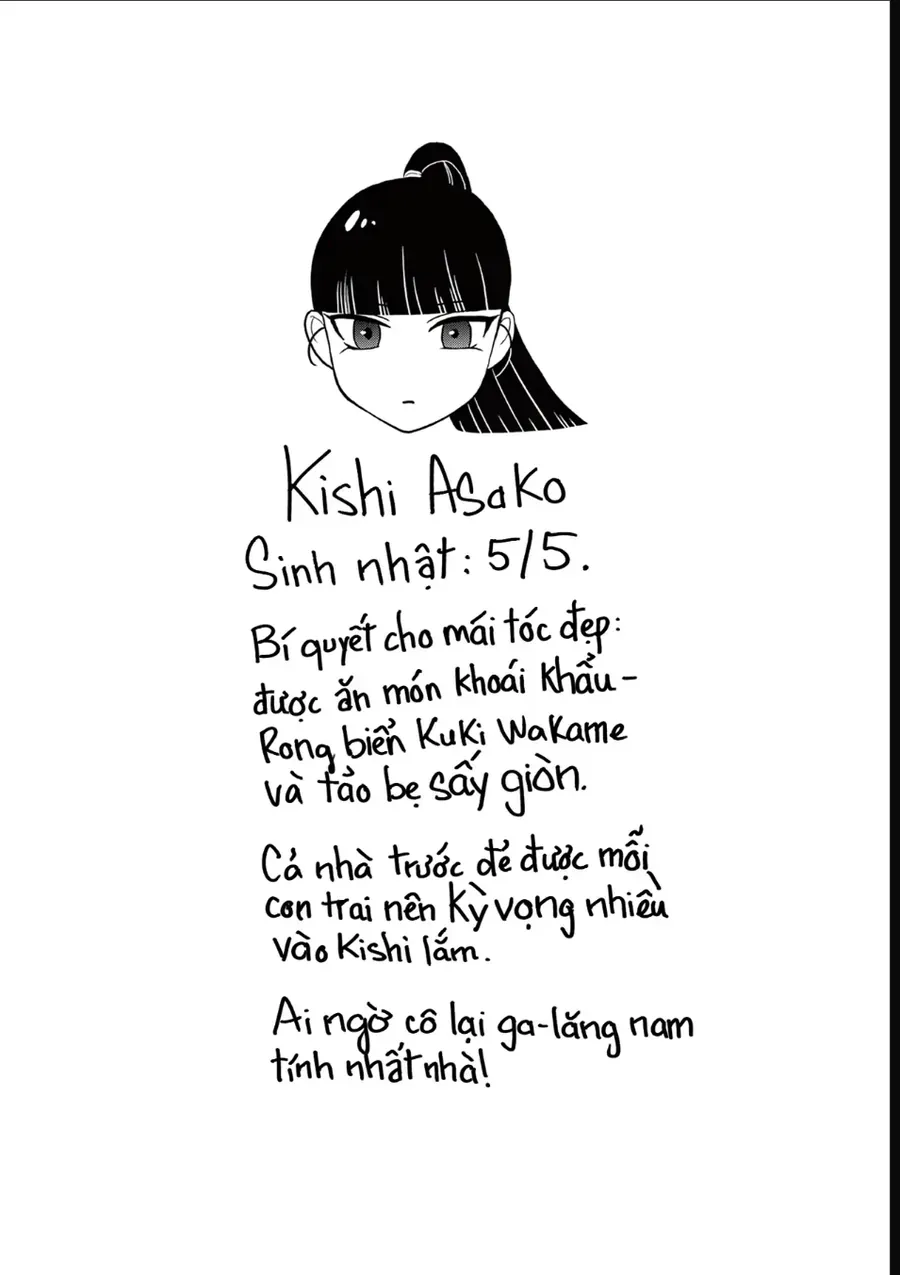 Kishi Asako
Sinh nhật: 5/5.
Bí quyết cho mái tóc đẹp:
được ăn món khoái khẩu-
Rong biển Kuki Wakame
và tảo bẹ sấy giòn.
Cả nhà trước đẻ được mỗi
con trai nên kỳ vọng nhiều
vào Kishi lắm.
Ai ngờ cô lại ga-lăng nam
tính nhất nhà!